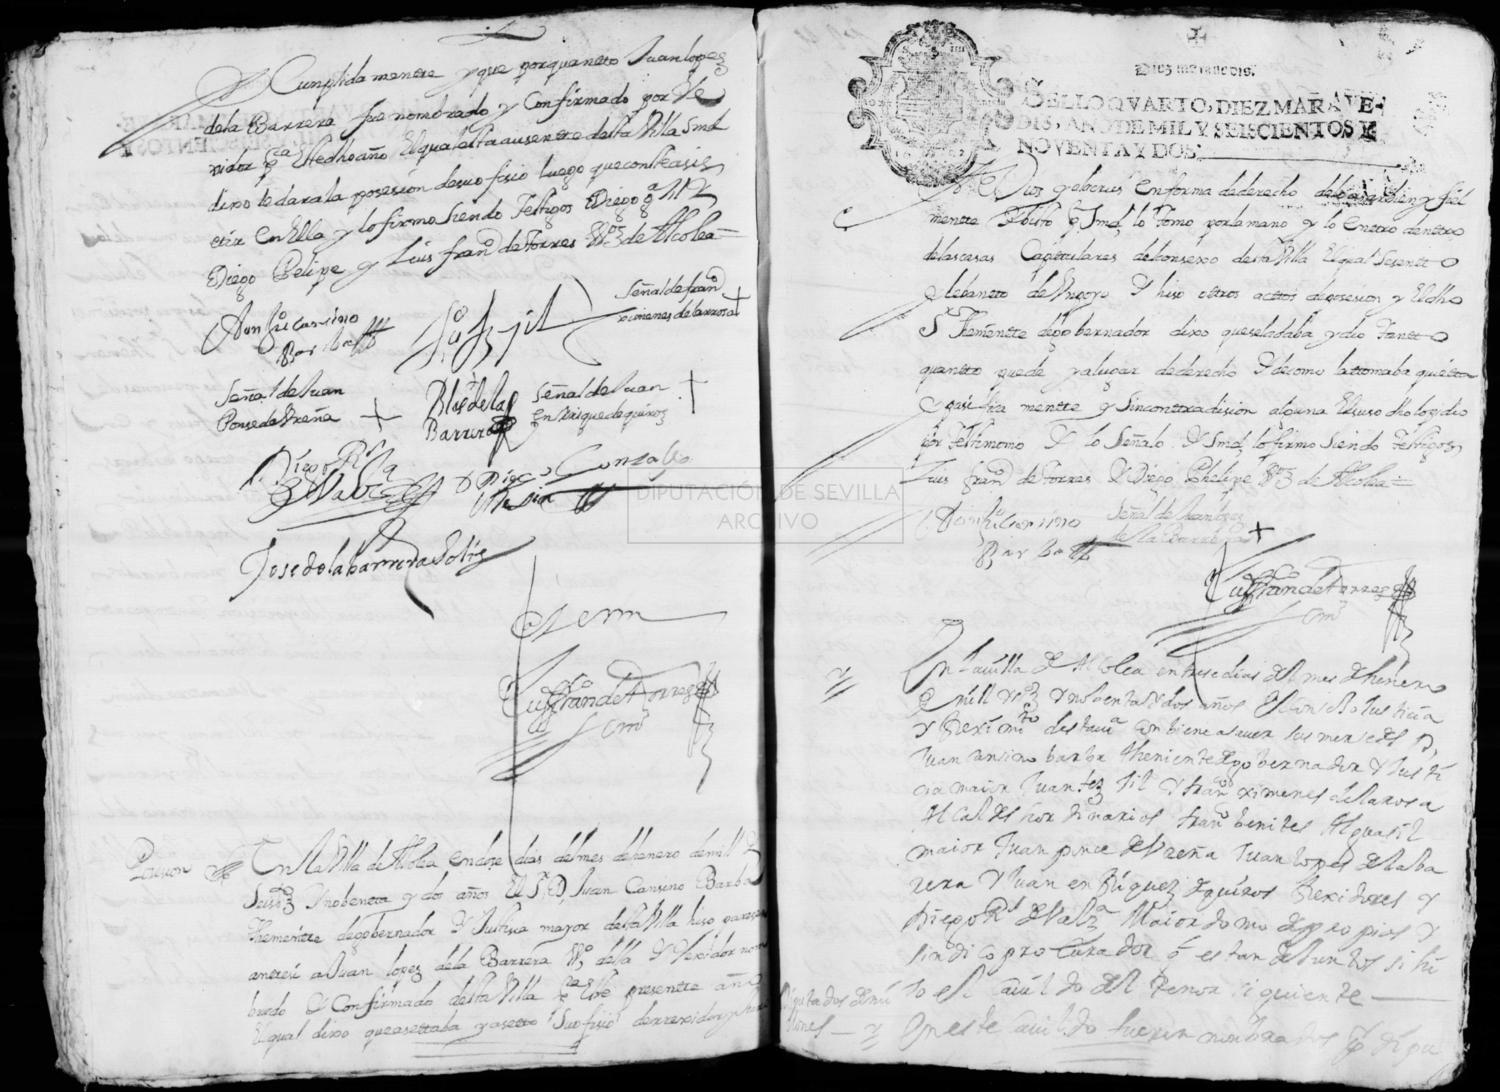 Cumplida mente y que por quanto Juan lopez
dela Barrera fue nombrado y Confirmado por Re
xidor pa Estedhoaño Elqual esta ausente desta Villa Smd
dixo le dara la posesion desu ofisio luego que conste asis
etir en Ella y lo firmo Siendo Testigos Diego
Diego Phelipe y Luis franco de torres Vos de Alcolea
Don Ju Cansino
Barba
Señal de franco
ximenes de la rrosa +
Señal de Juan
Ponse de Ureña +
Blas de la
Barrera
Señal de Juan
Enrriques de quiros +
Diego Rs
Diego Gonzales
Jose de la barrera Solis
Luis Franco de torres
Posesion En la Villa de Alcolea en dose dias del mes de henero de mill y
Seiss Y nobenta y dos años El Sr D Juan Cansino Barba
Theniente de gobernador Y Justisia mayor desta Villa hiso pareser
antesi a Juan lopez dela Barrera Vo della Y Rexidor nom
brado Y Confirmado desta Villa pa Este presente año
Elqual dixo que asettaba y asetto Su ofisio de rrexidor y
Diez marauedis.
SELLO QVARTO, DIEZ MARAVE-
DIS, AÑO DE MIL Y SEISCIENTOS Y
NOVENTA Y DOS.
Dios y a la cruz En forma de derecho de lo aser bien y fiel
mente Y Visto pr Smd lo tomo por la mano y lo Entro dentro
de las casas Capitulares del Consexo desta Villa Elqual Se sento
y lebanto de Un poyo Y hiso otros actos de posesion y El dho
Sr Theniente de gobernador dixo que se la daba y dio tanto
quanto puede y a lugar de derecho Y de como la tomaba quieta
y pasifica mente y Sin contradision alguna El suso dho lo pidio
por testimonio Y lo Señalo Y Smd lo firmo Siendo testigos
Luis franco de torres Y Diego Phelipe Vos de Alcolea
Don Ju Cansino
Barba
Señal de Juan lopez
de la barrera +
Luis Franco de torres
En la villa de Alcolea en trese dias del mes de henero
de mill y seiss y nobenta y dos años El Consexo Justicia
y Reximto desta va conbiene a saver sus mersedes D
Juan cansino barba theniente de gobernador y Justi
cia maior Juan Gil y franco ximenes de la rosa
Alcaldes hordinarios franco benites Alguasil
maior Juan ponce de Vreña Juan lopes de la ba
rrera y Juan enRiquez de quiros Rexidores y
Diego Rs Maiordomo de propios y
sindico procurador q estando Juntos
to el cavildo del tenor siguiente
Diputados
En este cavildo fueron nombrados por dipu
DIPUTACIÓN DE SEVILLA
ARCHIVO